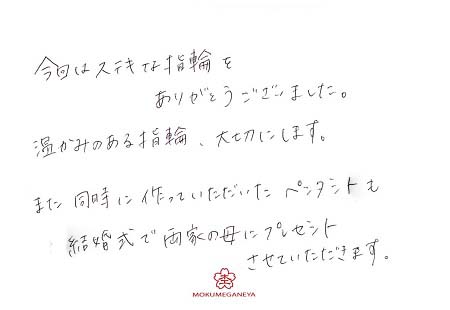 今回はステキな指輪を
ありがとうございました。
温かみのある指輪、大切にします。
また同時に作っていただいたペンダントも
結婚式で両家の母にプレゼント
させていただきます。
MOKUMEGANEYA